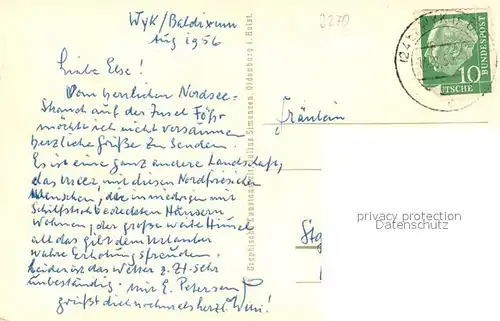 Wyk/Boldixum
Aug 1956
2270
Liebe Else!
Vom herrlichen Nordsee-
Strand auf der Insel Föhr
möchte ich nicht versäumen
herzliche Grüße zu senden.
Es ist eine ganz andere Landschaft,
das Meer, mit diesen Nordfriesischen
Menschen, die in niedrigen mit
Schilfstroh bedeckten Häusern
wohnen, der große weite Himmel
all das gibt dem Urlauber
wahre Erholungsfreuden.
Leider ist das Wetter z. Zt. sehr
unbeständig. Mit E. Petersen
grüßt dich nochmals herzl.
Graphische Kunstanstalt Julius Simonsen, Oldenburg i. Holst.
Fräulein
Stg
10
DEUTSCHE BUNDESPOST
privacy protection
Datenschutz